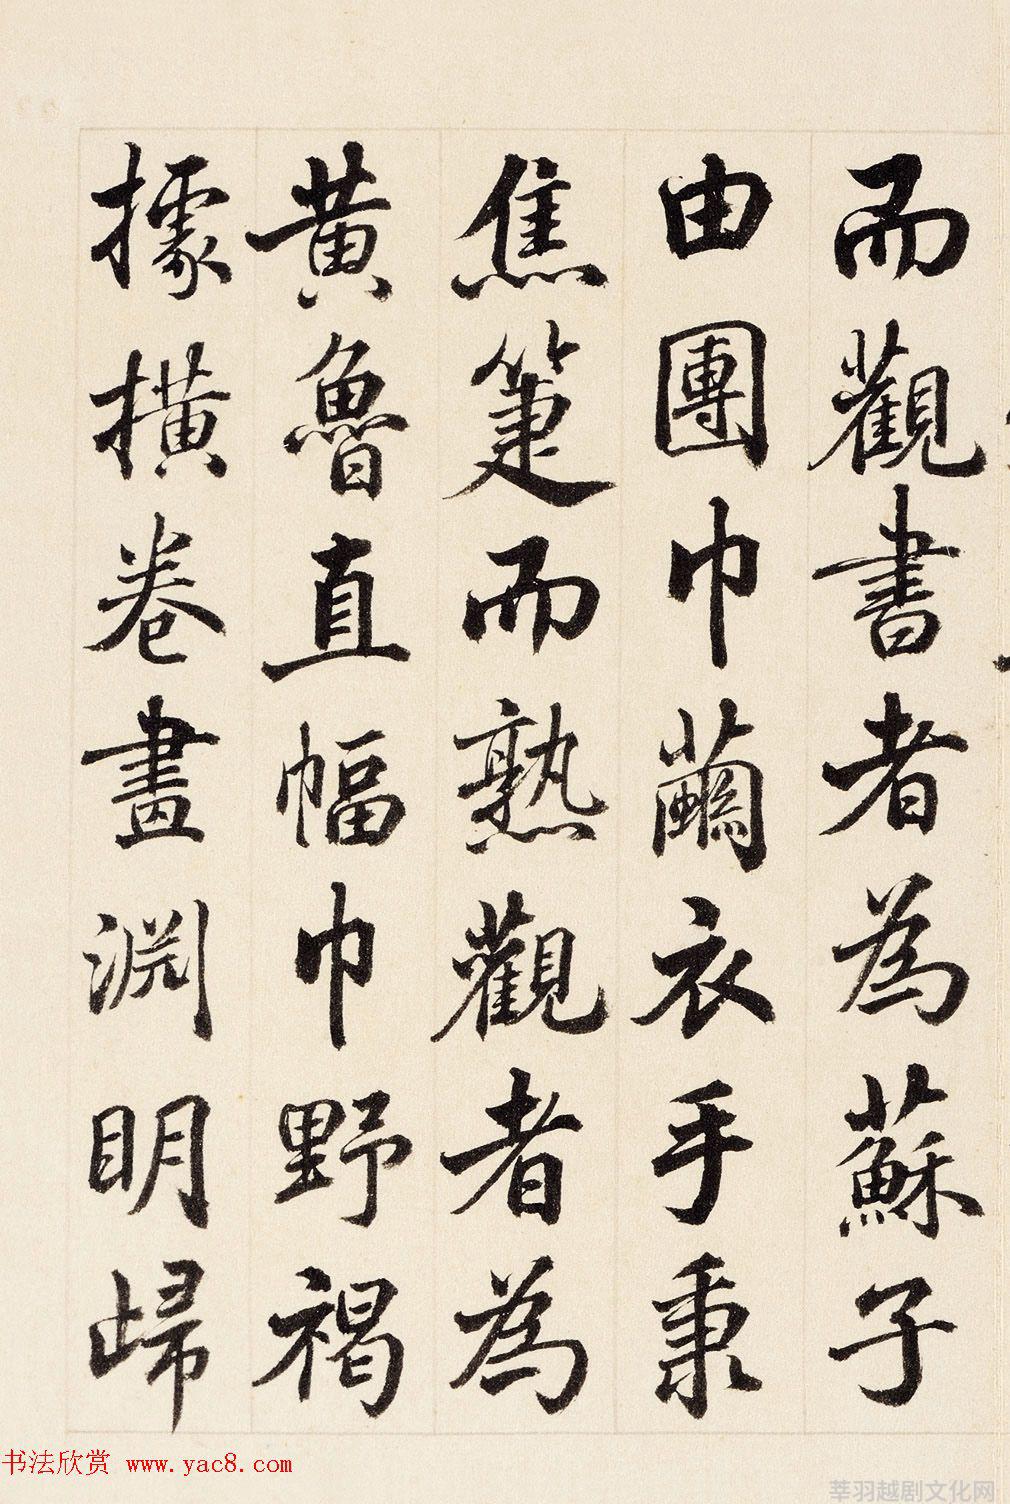 而觀書者為蘇子
由團巾繭衣手秉
焦箑而熟觀者為
黃魯直幅巾野褐
據橫卷畫淵明歸
书法欣赏 www.yac8.com
莘羽越剧文化网